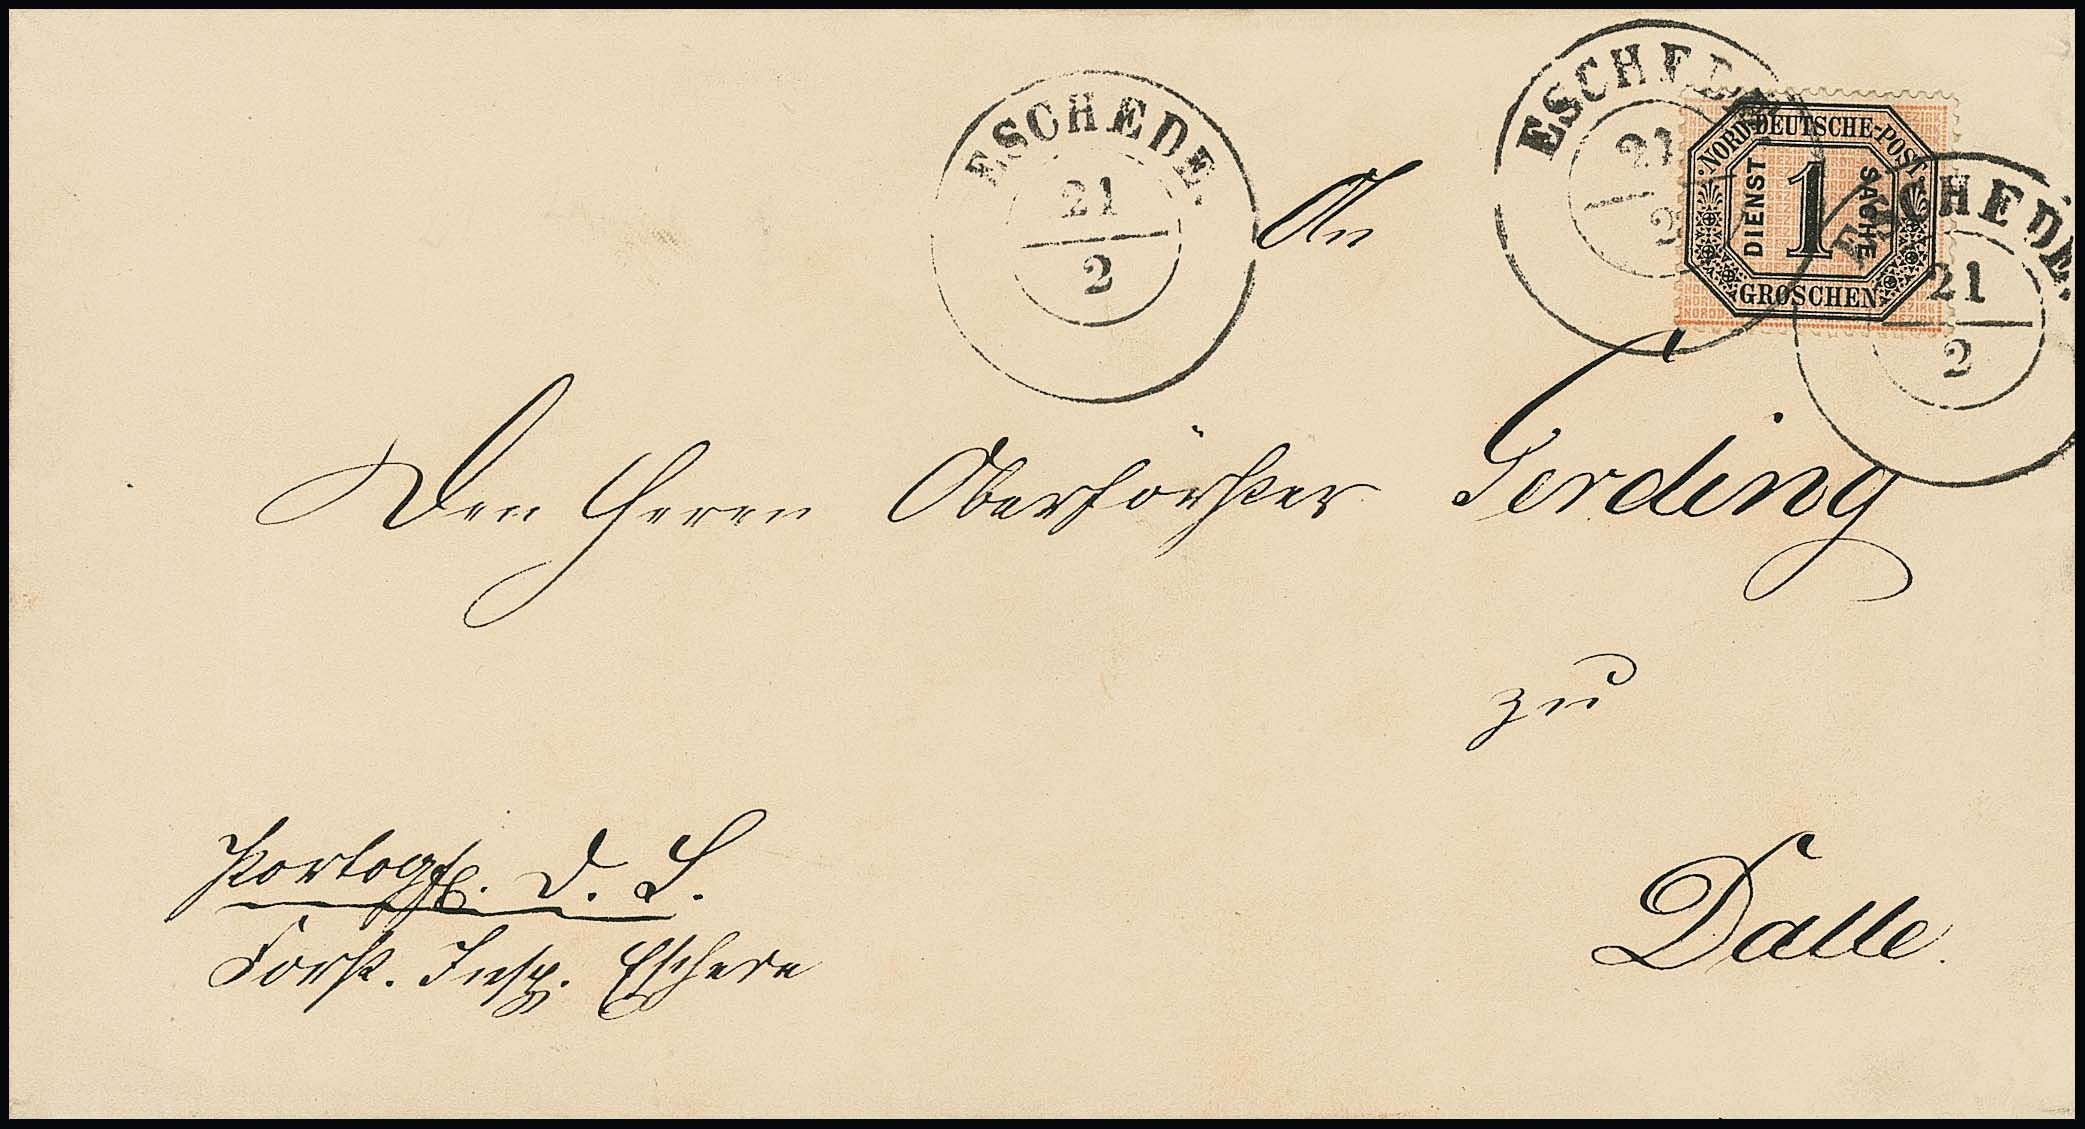 ESCHEDE.
21
2
ESCHEDE.
21
2
NORDDEUTSCHE-POST
DIENST 1 SACHE
GROSCHEN
ESCHEDE.
21
2
An
Den Herrn Oberförster Gerding
zu
Dalle.
Portopfl. D. S.
Forst. Insp. Eschede